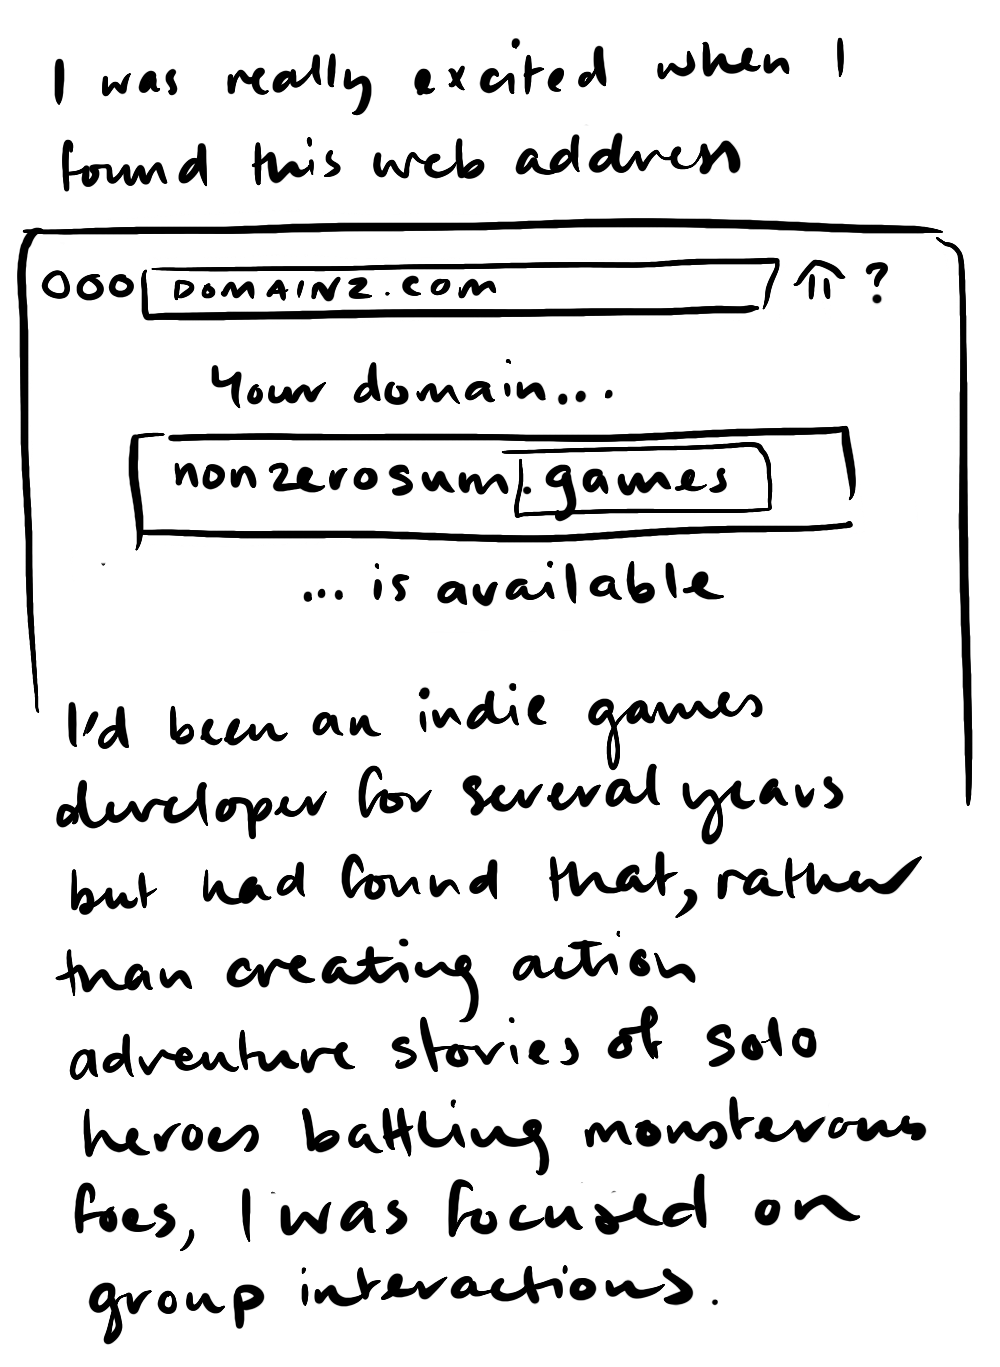 I was really excited when I
found this web address
DOMAINZ.COM ?
Your domain...
nonzerosum.games
... is available
I'd been an indie games
developer for several years
but had found that, rather
than creating action
adventure stories of solo
heroes battling monsterous
foes, I was focused on
group interactions.